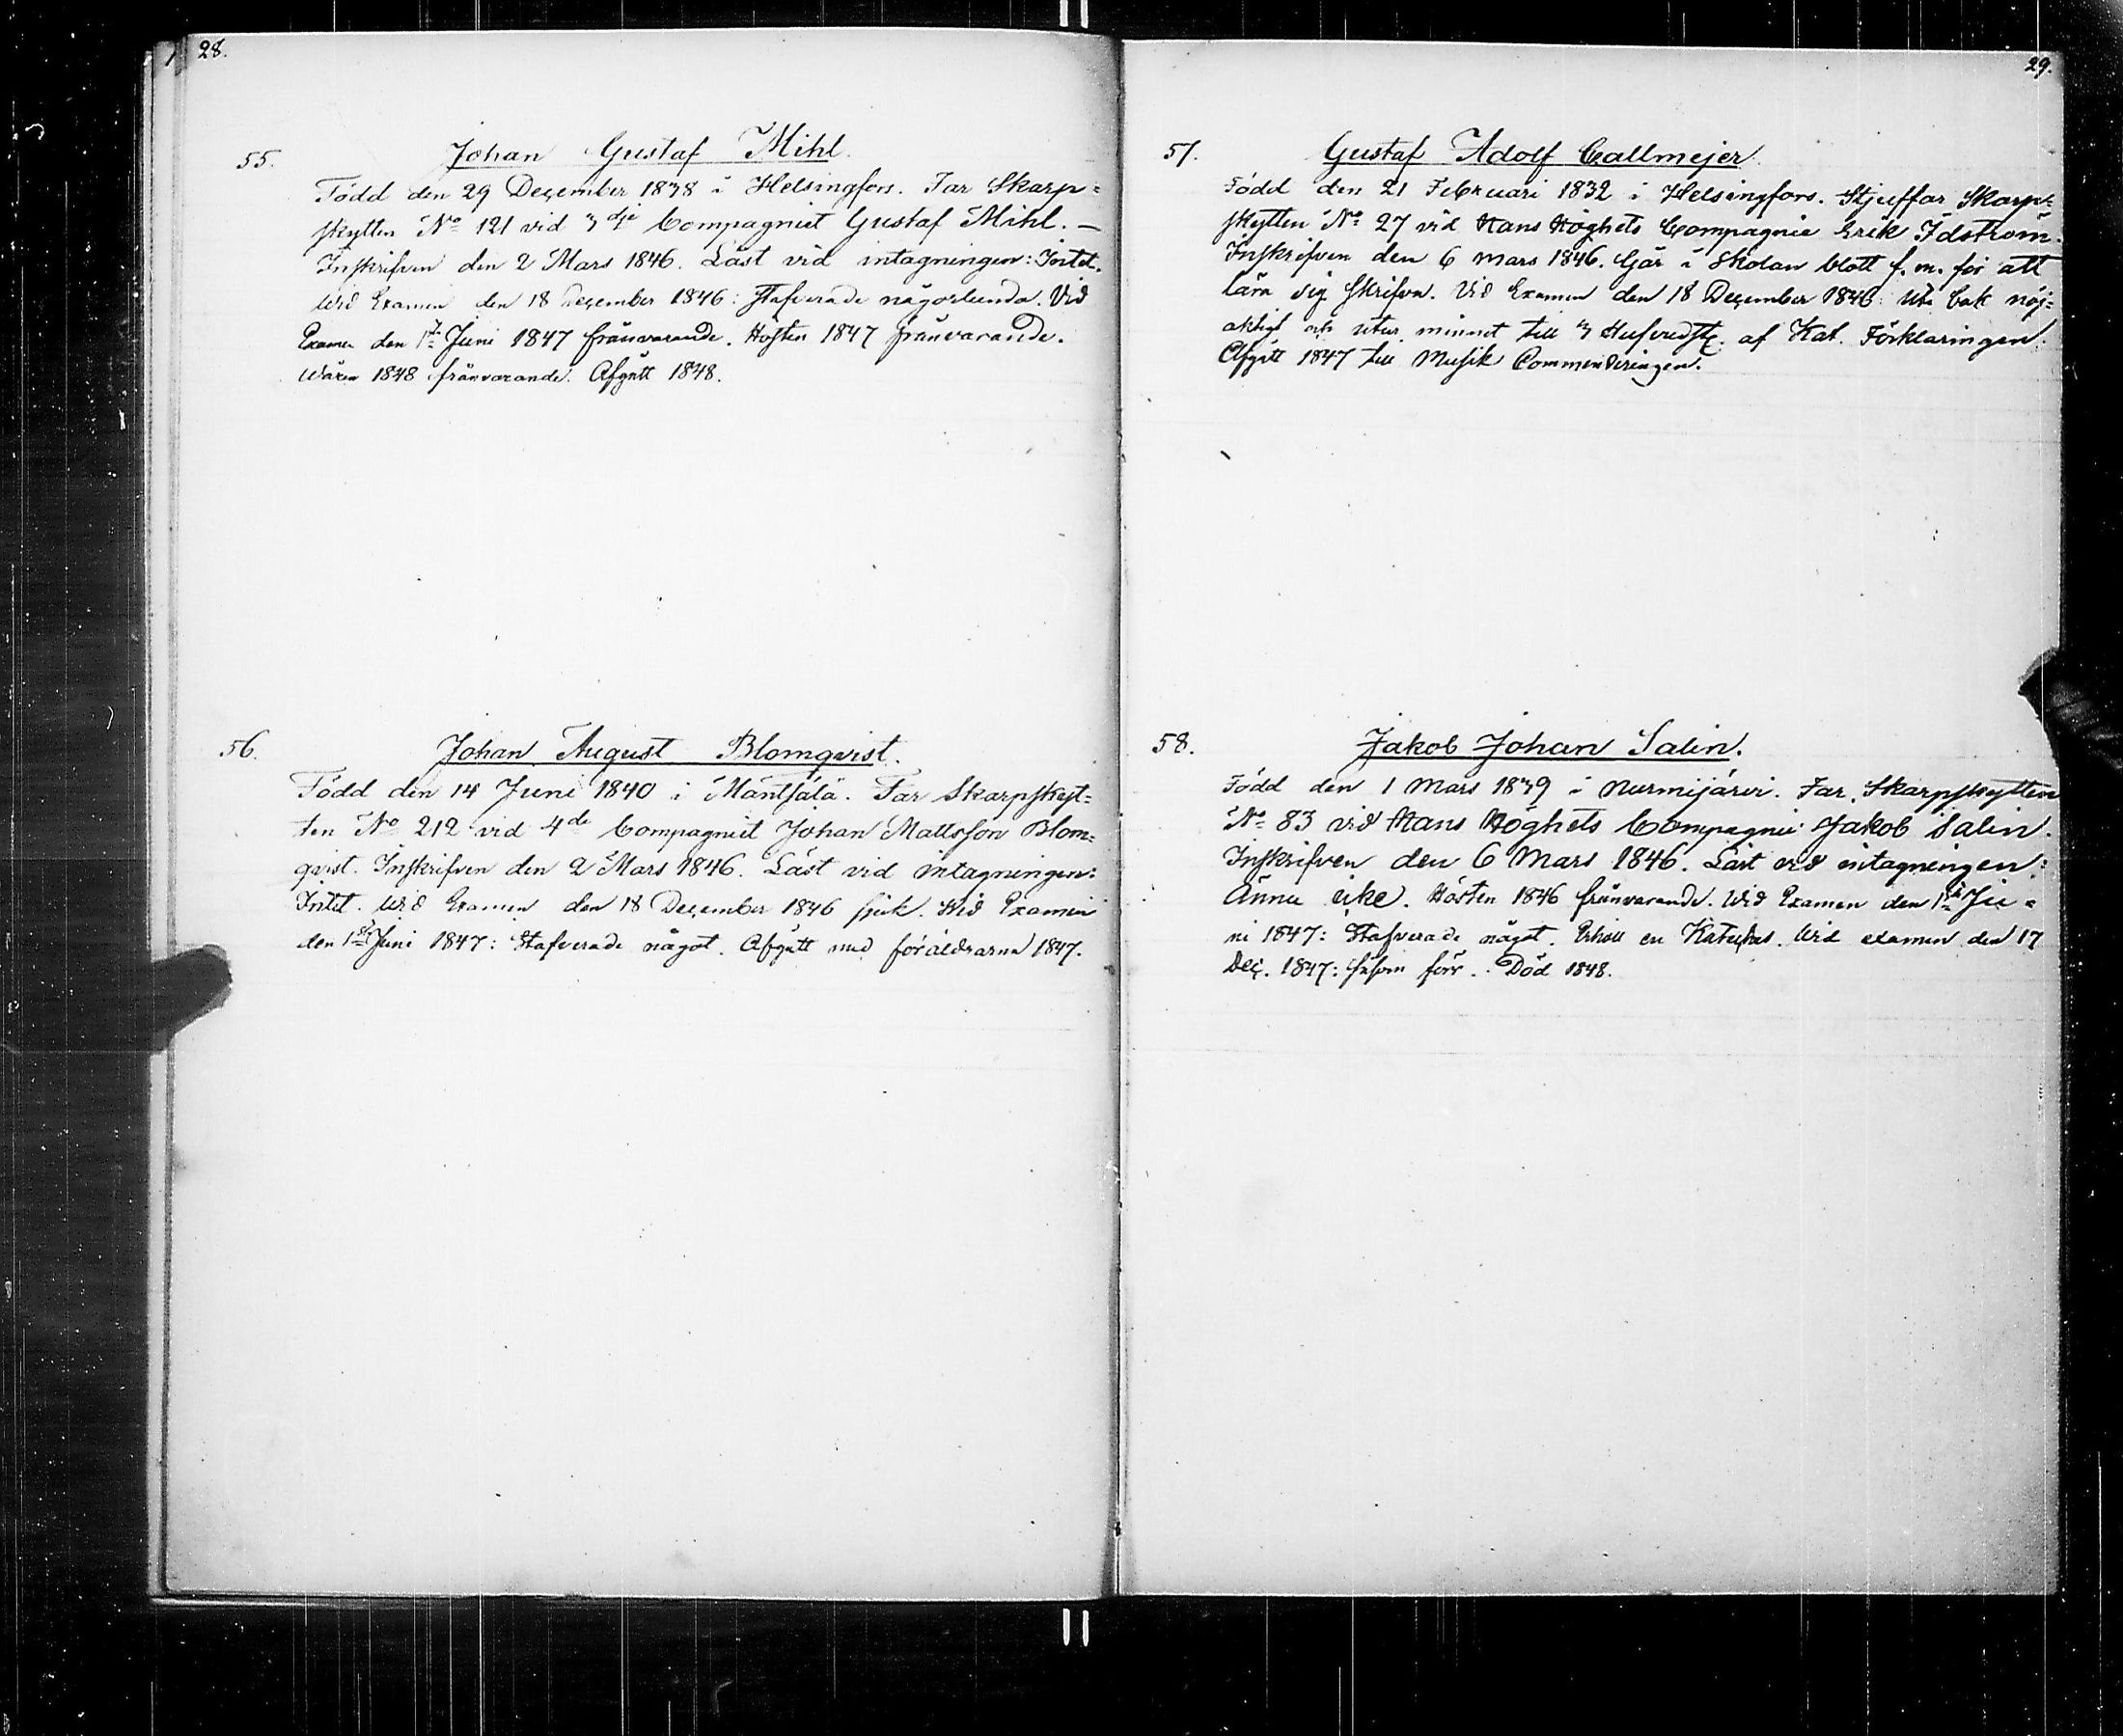 28.
55. Johan Gustaf Mihl.
Född den 29 December 1838 i Helsingfors. Far Skarp=
skytten No 121 vid 3dje Compagniet Gustaf Mihl. —
Inskrifven den 2 Mars 1846. Läst vid intagningen: Intet.
Wid Examen den 18 December 1846: Stafverade någorlunda. Vid
Examen den 1sta Juni 1847 frånvarande. Hösten 1847 frånvarande.
Wåren 1848 frånvarande. Afgått 1848.
56. Johan August Blomqvist.
Född den 14 Juni 1840 i Mäntsälä. Far Skarpskyt=
ten No 212 vid 4de Compagniet Johan Mattsson Blom=
qvist. Inskrifven den 2 Mars 1846. Läst vid intagningen:
Intet. Wid Examen den 18 December 1846 sjuk. Wid Examen
den 1sta Juni 1847: Stafverade något. Afgått med föräldrarna 1847.
29.
57. Gustaf Adolf Callmejer.
Född den 21 Februari 1832 i Helsingfors. Stjuffar Skarp=
skytten No 27 vid Hans Höghets Compagnie Erik Idström.
Inskrifven den 6 Mars 1846. Går i Skolan blott f. m. för att
lära sig skrifva. Vid Examen den 18 December 1846: Utabak nöj=
aktigt och utur minnet till 3 Hufvudst. af Kat. Förklaringen.
Afgått 1847 till Musik Commenderingen.
58. Jakob Johan Salin.
Född den 1 Mars 1839 i Nurmijärvi. Far, Skarpskytten
No 83 vid Hans Höghets Compagnie Jakob Salin.
Inskrifven den 6 Mars 1846. Läst vid intagningen:
Ännu icke. Hösten 1846 frånvarande. Wid Examen den 1sta Ju=
ni 1847: Stafverade något. Erhöll en Kateches. Wid examen den 17
Dec. 1847: såsom förr. Död 1848.